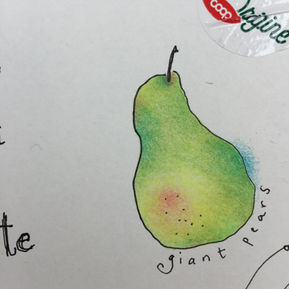 coop
Origine
te
giant pears